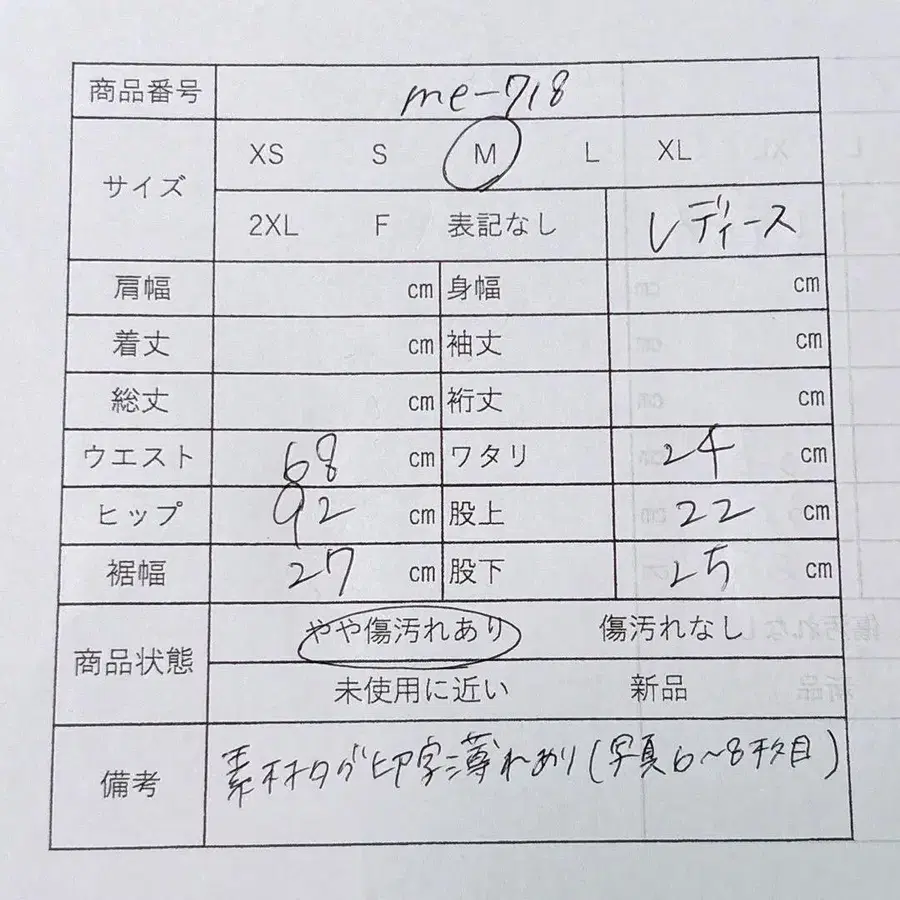 商品番号 me-718
サイズ XS S M L XL
2XL F 表記なし レディース
肩幅 cm 身幅 cm
着丈 cm 袖丈 cm
総丈 cm 裄丈 cm
ウエスト 68 cm ワタリ 24 cm
ヒップ 92 cm 股上 22 cm
裾幅 27 cm 股下 25 cm
商品状態 やや傷汚れあり 傷汚れなし
未使用に近い 新品
備考 素材タグ印字薄れあり(写真6~8枚目)